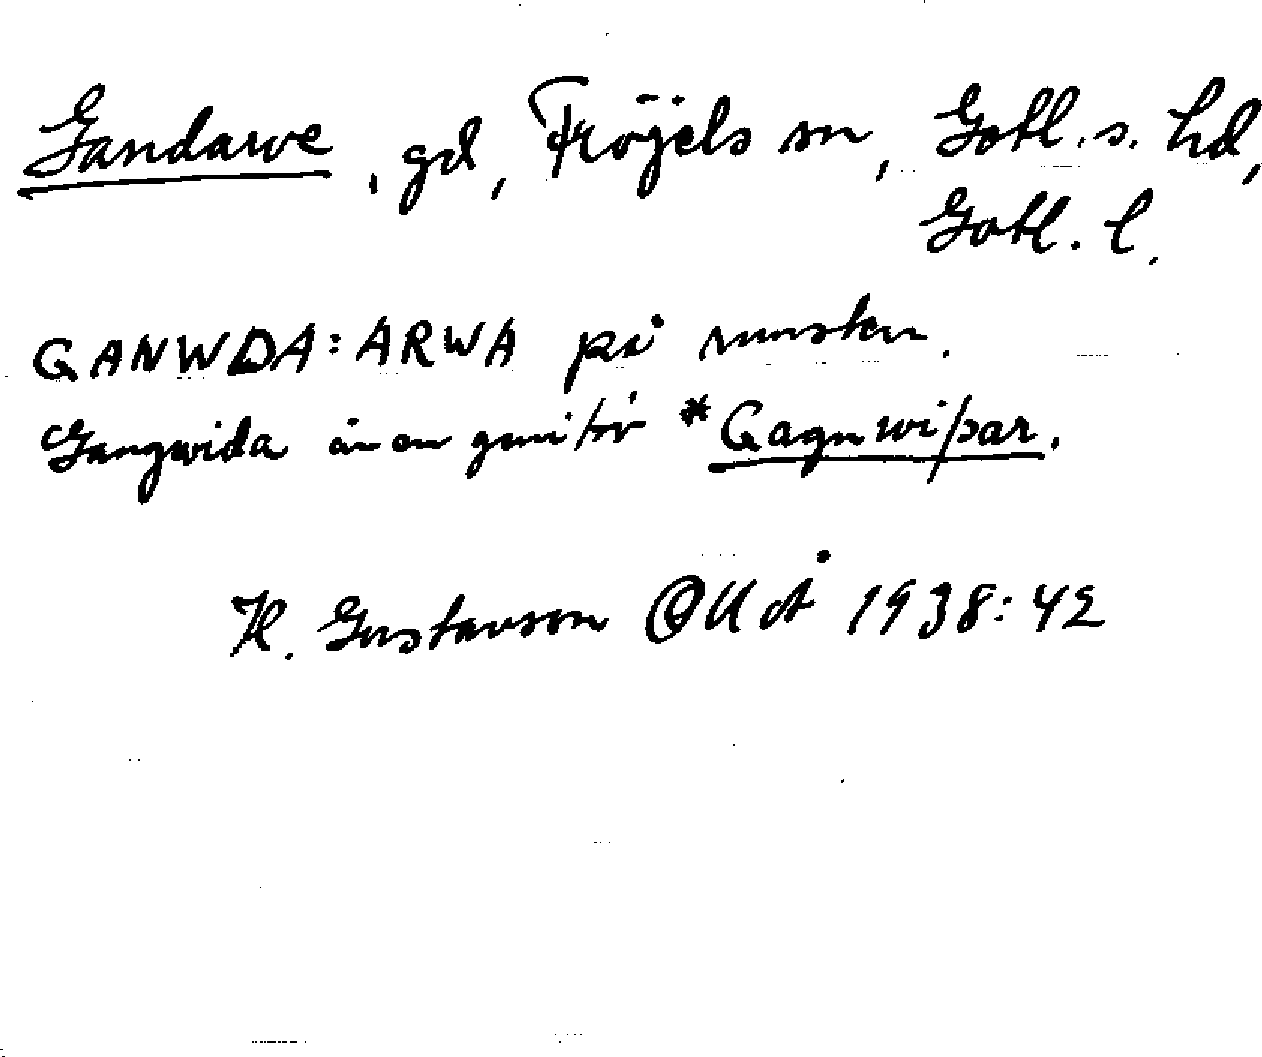 Gandarve, gd, Fröjels sn, Gotl. s. hd,
Gotl. l.
GANWDA:ARWA på runsten.
Gangwida är en geni för *Gagnwiþar.
H. Gustavson GUÅ 1938:42